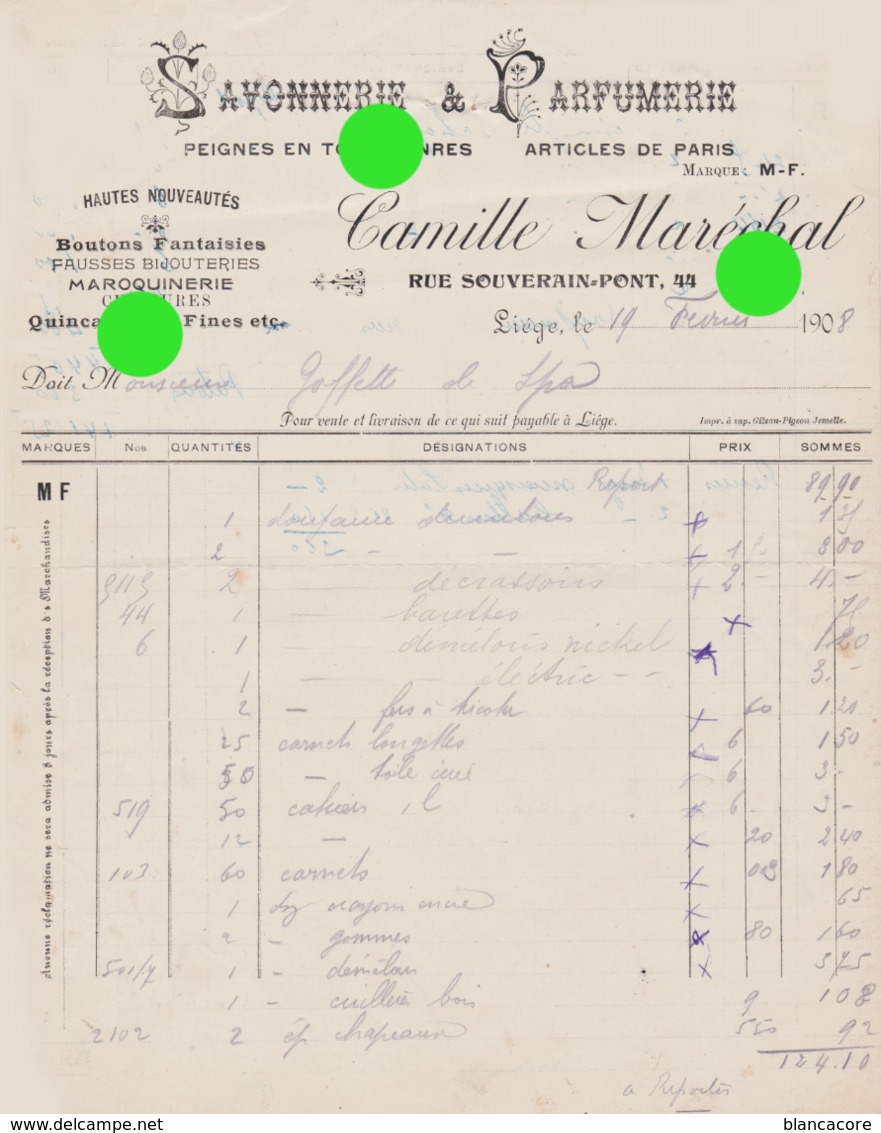 SAVONNERIE & PARFUMERIE
PEIGNES EN ARTICLES DE PARIS
MARQUE: M-F.
HAUTES NOUVEAUTÉS
Camille Maréchal
Boutons Fantaisies
FAUSSES BIJOUTERIES
MAROQUINERIE
RUE SOUVERAIN-PONT, 44
Fines etc.
Liége, le 19 Fevrier 1908
Doit Monsieur Goffette de Spa
Pour vente et livraison de ce qui suit payable à Liége.
Impr. à vap. Gilson-Pigeon Jemelle.
MARQUES Nos QUANTITÉS DÉSIGNATIONS PRIX SOMMES
MF Report 89 90
1 démeloirs
2 — — 3 00
2 — décrassoirs 2 - 4 -
44 1 — barettes 75
6 1 — démeloirs nickel 1 20
1 — — électric - - 3 -
2 — fers à 60 1 20
25 carnets 6 1 50
50 — toile cirée 6 3 -
519 50 cahiers 6 - 3 -
12 — 20 2 40
103 60 carnets 003 1 80
1 dz crayons encre 65
2 - gommes 80 1 60
501/7 1 - 3 75
1 - cuillères bois 9 1 08
2102 2 ép chapeaux 550 92
124.10
a Reporter
Aucune réclamation ne sera admise 8 jours après la réception des Marchandises
www.delcampe.net
blancacore